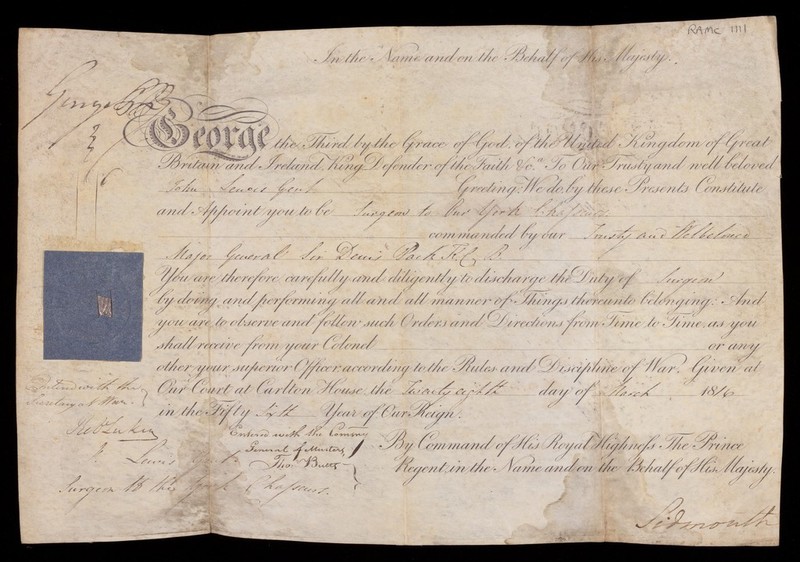 RAMC 1111
In the Name and on the Behalf of His Majesty.
George P R
George the Third by the Grace of God, of the United Kingdom of Great
Britain and Ireland, King Defender of the Faith &c.a To Our Trusty and well beloved
John Lewis Gent Greeting: We do by these Presents Constitute
and Appoint you to be Surgeon to Our York Chasseurs
commanded by our Trusty and Welbeloved
Major General Sir Denis Pack K C B
You are therefore carefully and diligently to discharge the Duty of Surgeon
by doing and performing all and all manner of Things thereunto belonging: And
you are to observe and follow such Orders and Directions from Time to Time, as you
shall receive from your Colonel or any
other your superior Officer according to the Rules and Discipline of War. Given at
Our Court at Carlton House, the Twenty eighth day of March 1816
in the Fifty Sixth Year of Our Reign.
Entered with the
Secretary at War.
Entered with the Comssary
General of Musters
Thos. Butts
By Command of His Royal Highness The Prince
Regent, in the Name and on the Behalf of His Majesty.
J. Lewis
Surgeon to the York Chasseurs.
Sidmouth